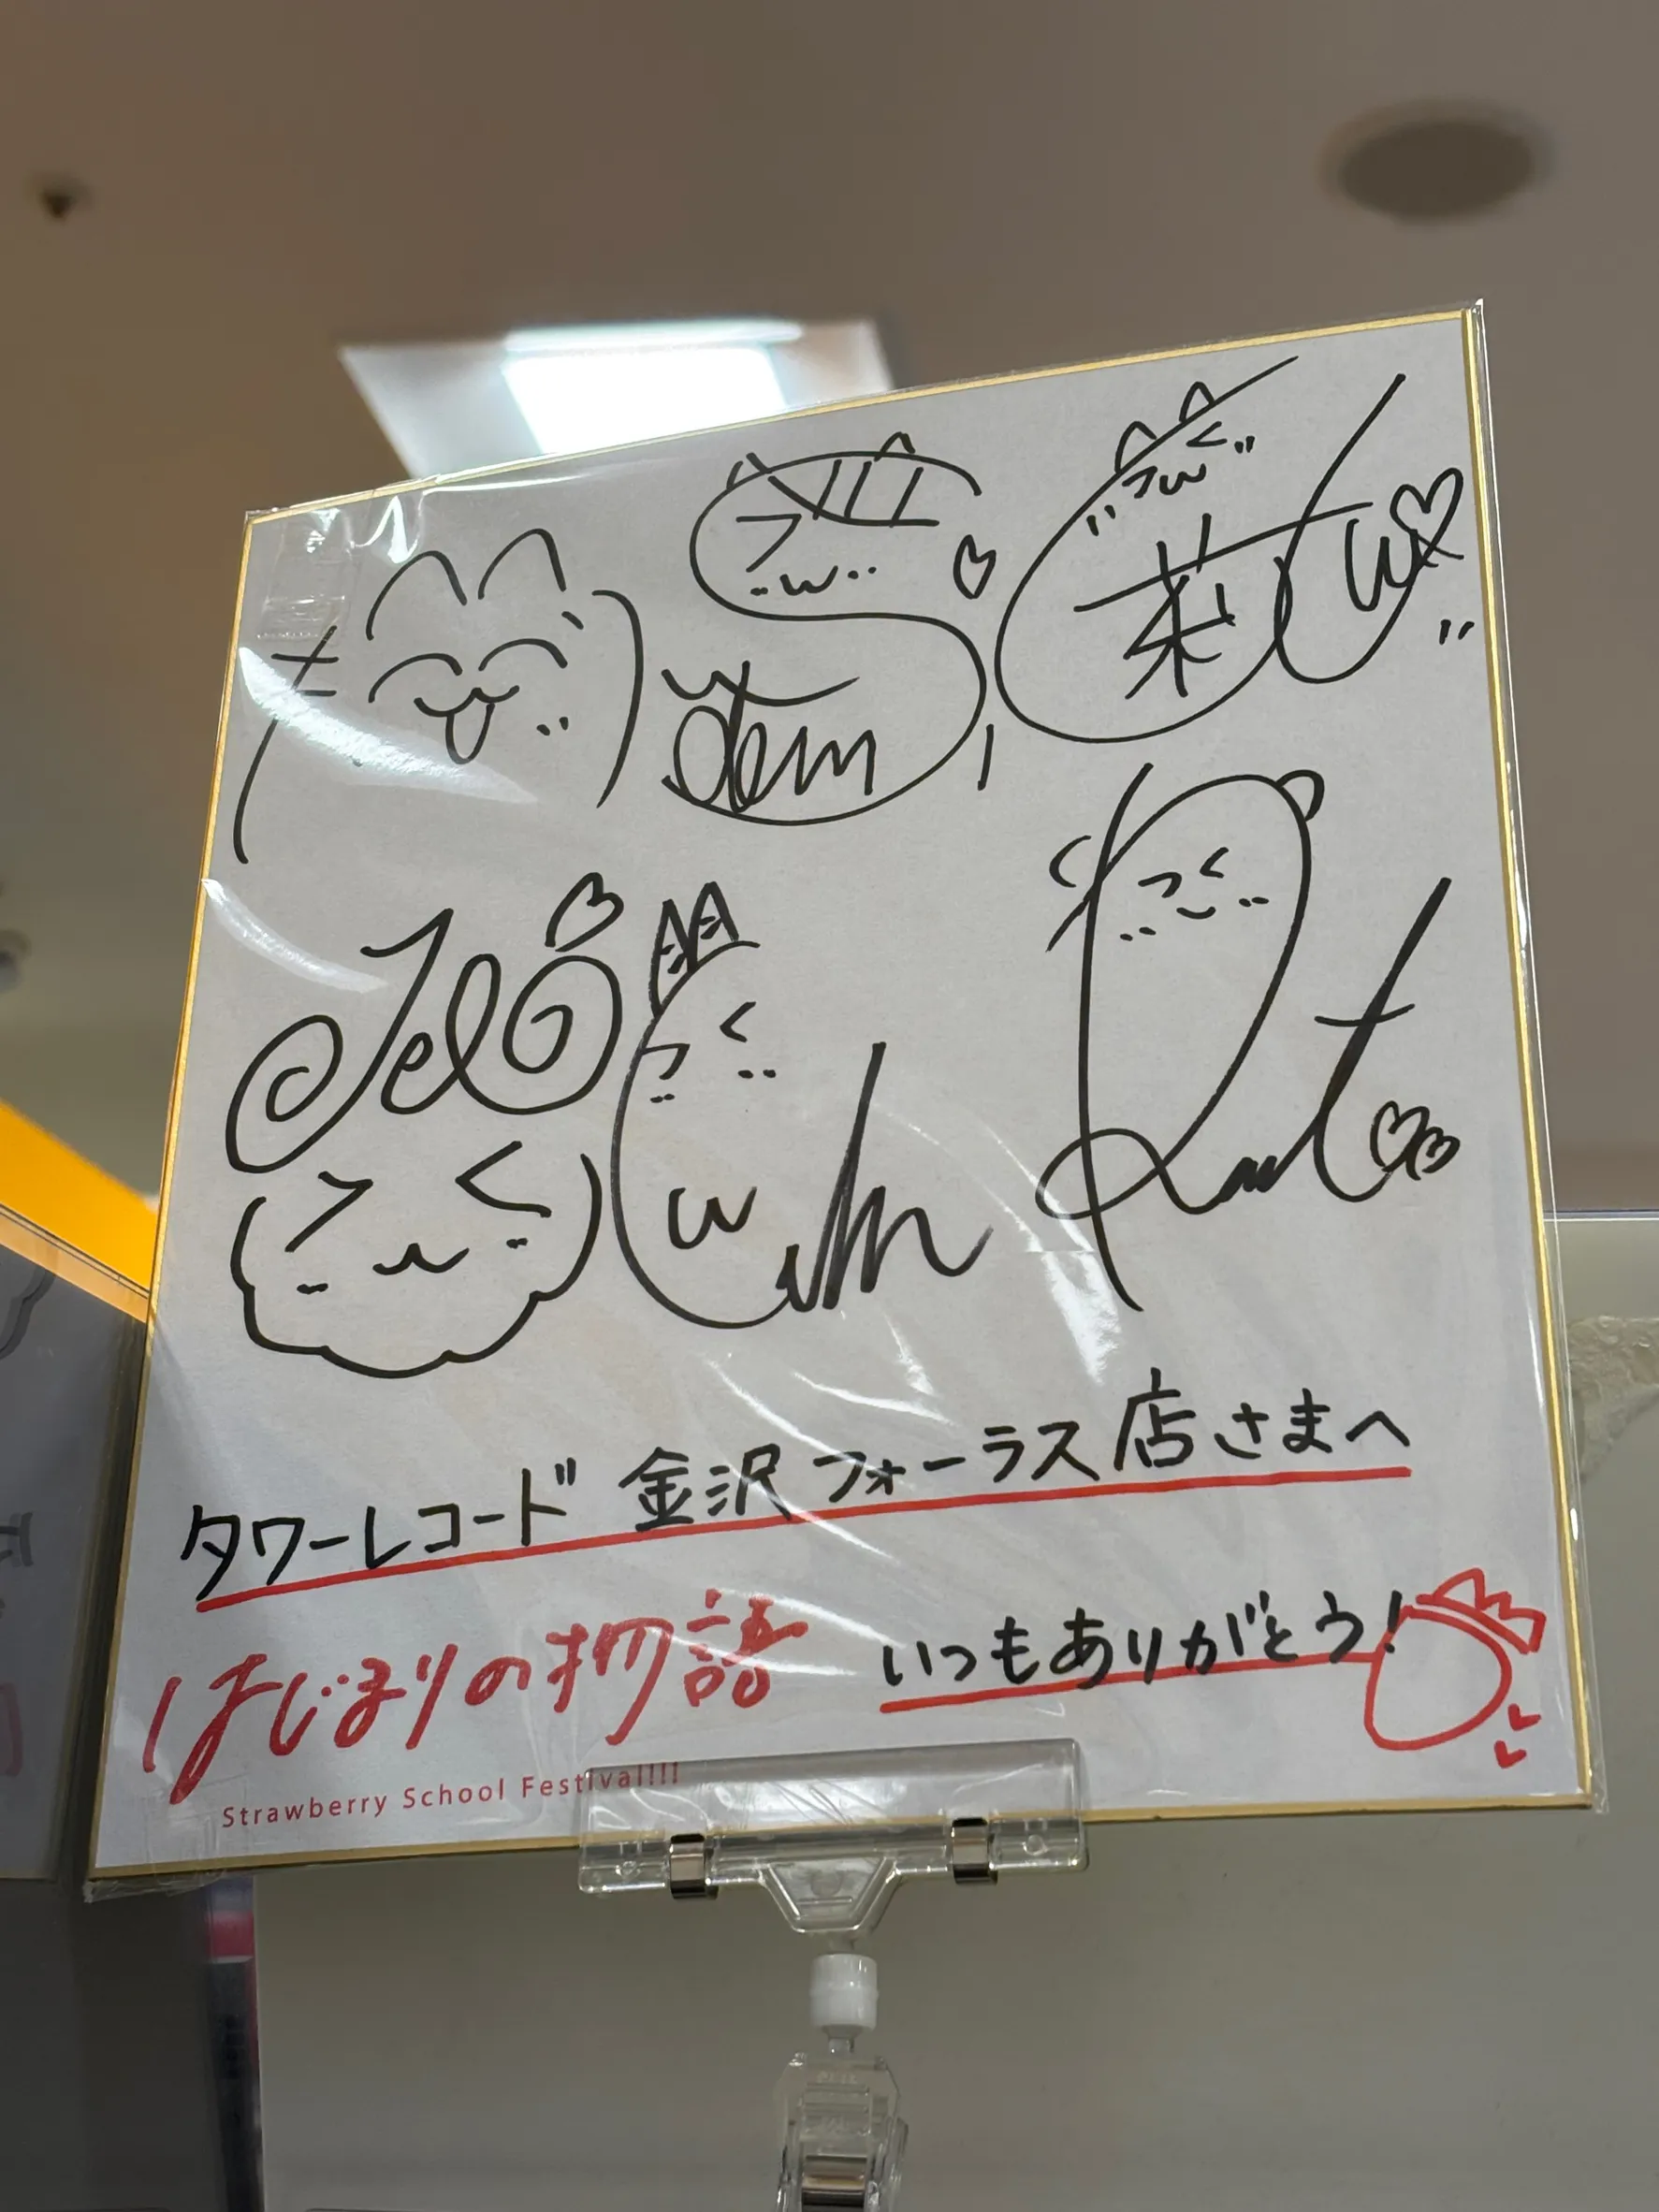 莉
Jel
Root
タワーレコード 金沢フォーラス店さまへ
はじまりの物語
いつもありがとう!
Strawberry School Festival!!!